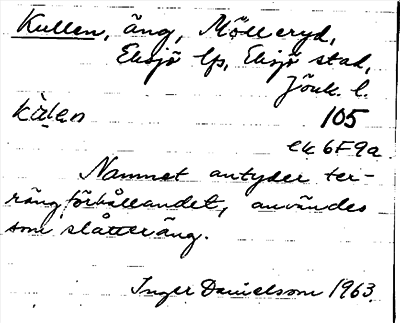 Kullen, äng, Mölleryd,
Eksjö lfs, Eksjö stad,
Jönk. l.
105
ek 6F9a
Namnet antyder ter-
rängförhållandet, användes
som slåtteräng.
Inger Danielsson 1963